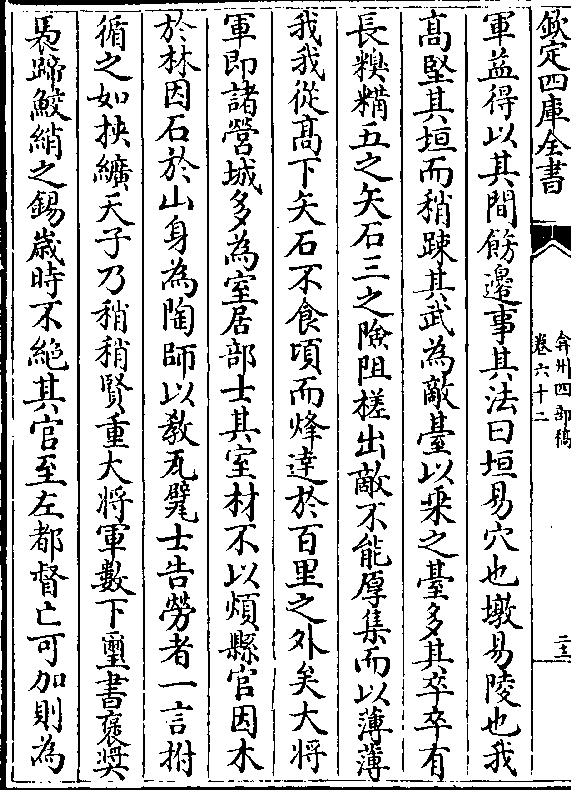 欽定四庫全書
弇州四部稿
卷六十二
二三
軍益得以其間飭邊事其法曰垣易穴也墩易陵也我
高堅其垣而稍踈其武為敵䑓以乘之䑓多其卒卒有
長糗糒五之矢石三之險阻槎出敵不能厚集而以薄薄
我我從髙下矢石不食頃而烽達於百里之外矣大將
軍即諸營城多為室居部士其室材不以煩縣官因木
於林因石於山身為陶師以教瓦甓士告勞者一言拊
循之如挾纊天子乃稍稍賢重大將軍數下璽書褒奨
褭蹄鮫綃之錫歲時不絶其官至左都督亡可加則為